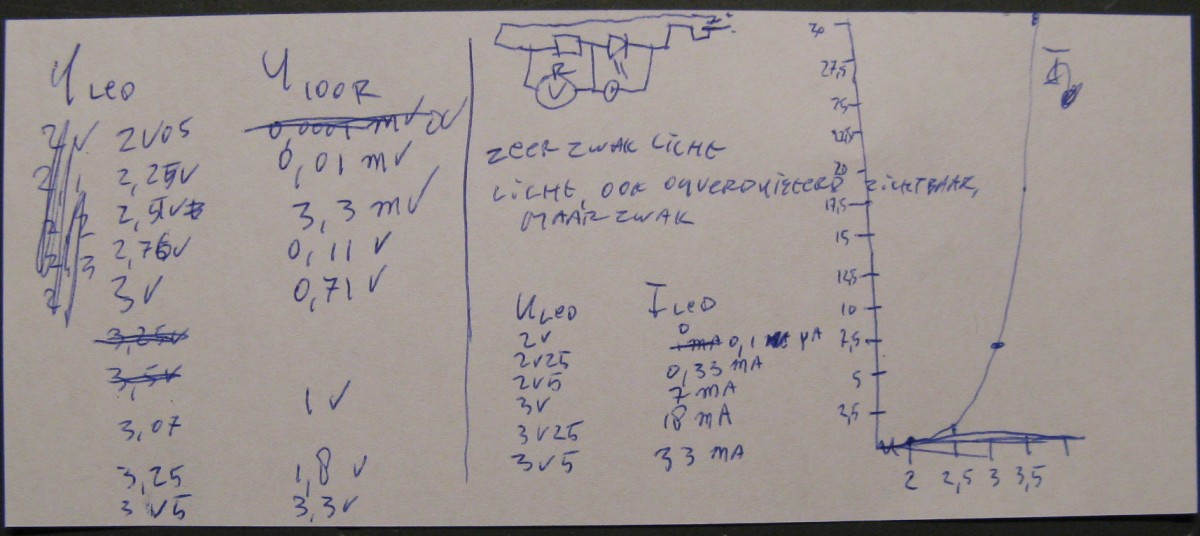 U LED U 100R
2V05 0,0001 mV 0V
2,25V 0,01 mV
2,5V 3,3 mV
2,75V 0,11 V
3V 0,71 V
3,25V
3,5V
3,07 1 V
3,25 1,8 V
3V5 3,3V
R
V
ZEER ZWAK LICHT
LICHT, OOK ONVERDUISTERD ZICHTBAAR,
MAAR ZWAK
U LED I LED
2V 0
2V25 1mA 0,1 µA
2V5 0,33 mA
3V 7 mA
3V25 18 mA
3V5 33 mA
30
27,5
25
22,5
20
17,5
15
12,5
10
7,5
5
2,5
I
U
2 2,5 3 3,5